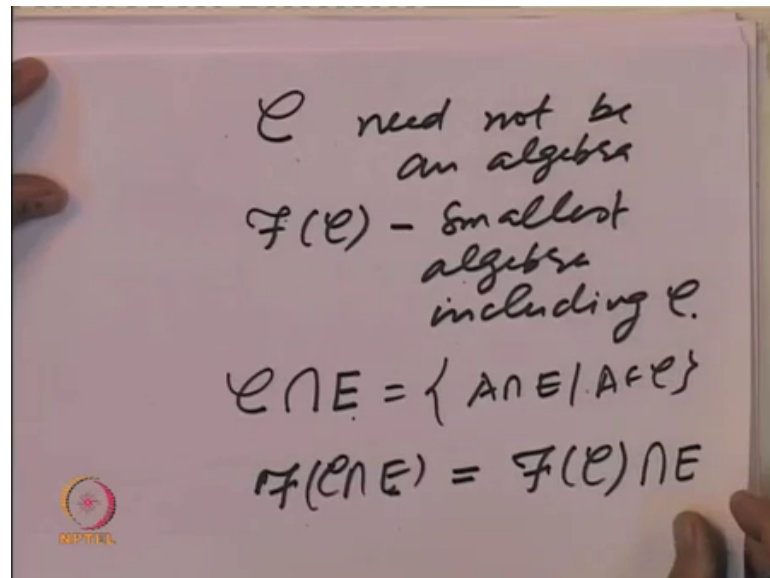 𝒞 need not be
an algebra
ℱ(𝒞) - Smallest
algebra
including 𝒞.
𝒞 ∩ E = { A ∩ E | A ∈ 𝒞}
ℱ(𝒞 ∩ E) = ℱ(𝒞) ∩ E
NPTEL